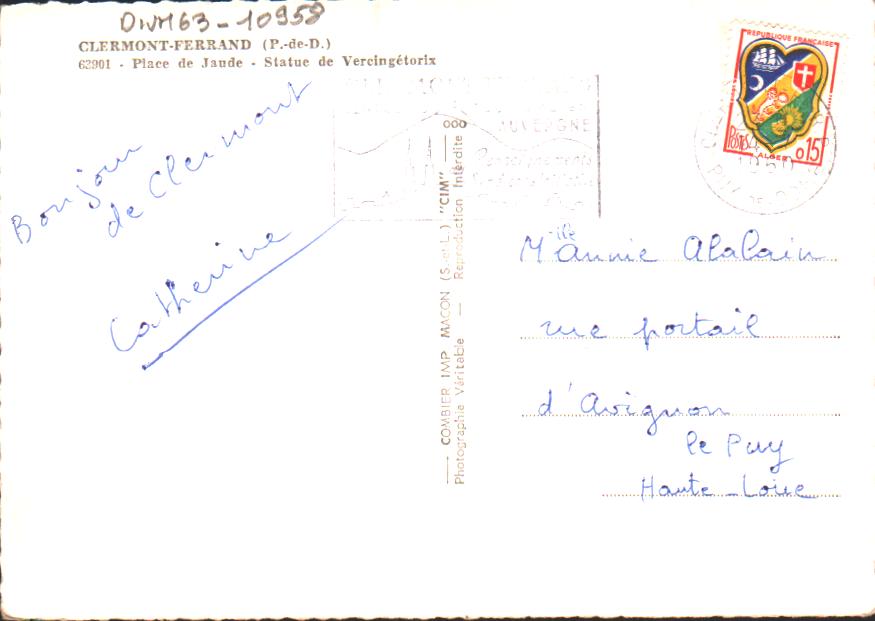 DIVM63-10958
CLERMONT-FERRAND (P.-de-D.)
63901 - Place de Jaude - Statue de Vercingétorix
Bonjour
de Clermont
Catherine
COMBIER IMP MACON (S.-et-L.) "CIM"
Photographie Véritable — Reproduction Interdite
AUVERGNE
REPUBLIQUE FRANÇAISE
POSTES
0,15
ALGER
1960
Mlle Annie Alalain
rue portail
d'Avignon
le Puy
Haute-Loire